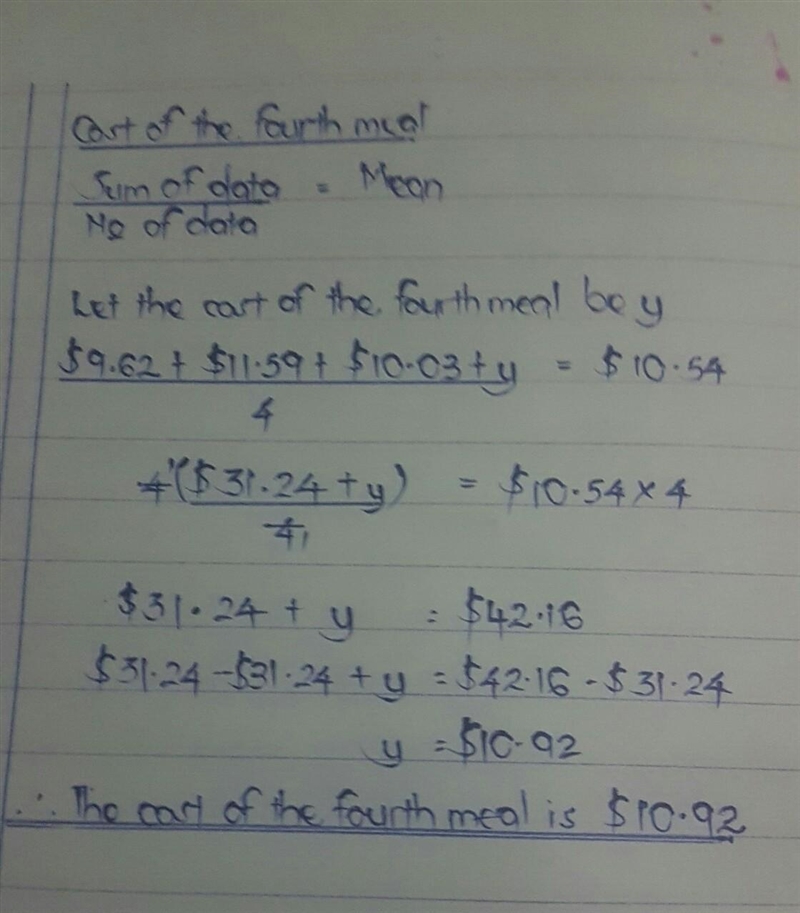 Cost of the fourth meal
Sum of data = Mean
No of data
Let the cost of the fourth meal be y
$9.62 + $11.59 + $10.03 + y = $10.54
4
4 1($31.24 + y) = $10.54 × 4
4 1
$31.24 + y = $42.16
$31.24 - $31.24 + y = $42.16 - $31.24
y = $10.92
∴ The cost of the fourth meal is $10.92